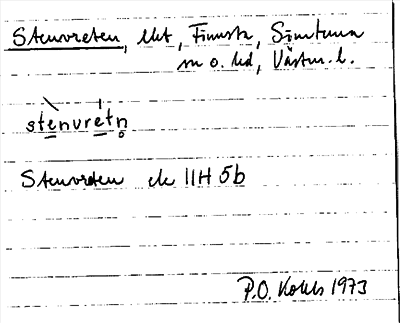 Stenvreten, lht, Finnsta, Simtuna
sn o. hd, Västm. l.
stenvretn
Stenvreten ek 11H 5b
P.O. Kohls 1973